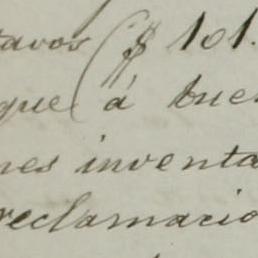 tavos ($ 101.
que á bue
nes inventa
reclamacio